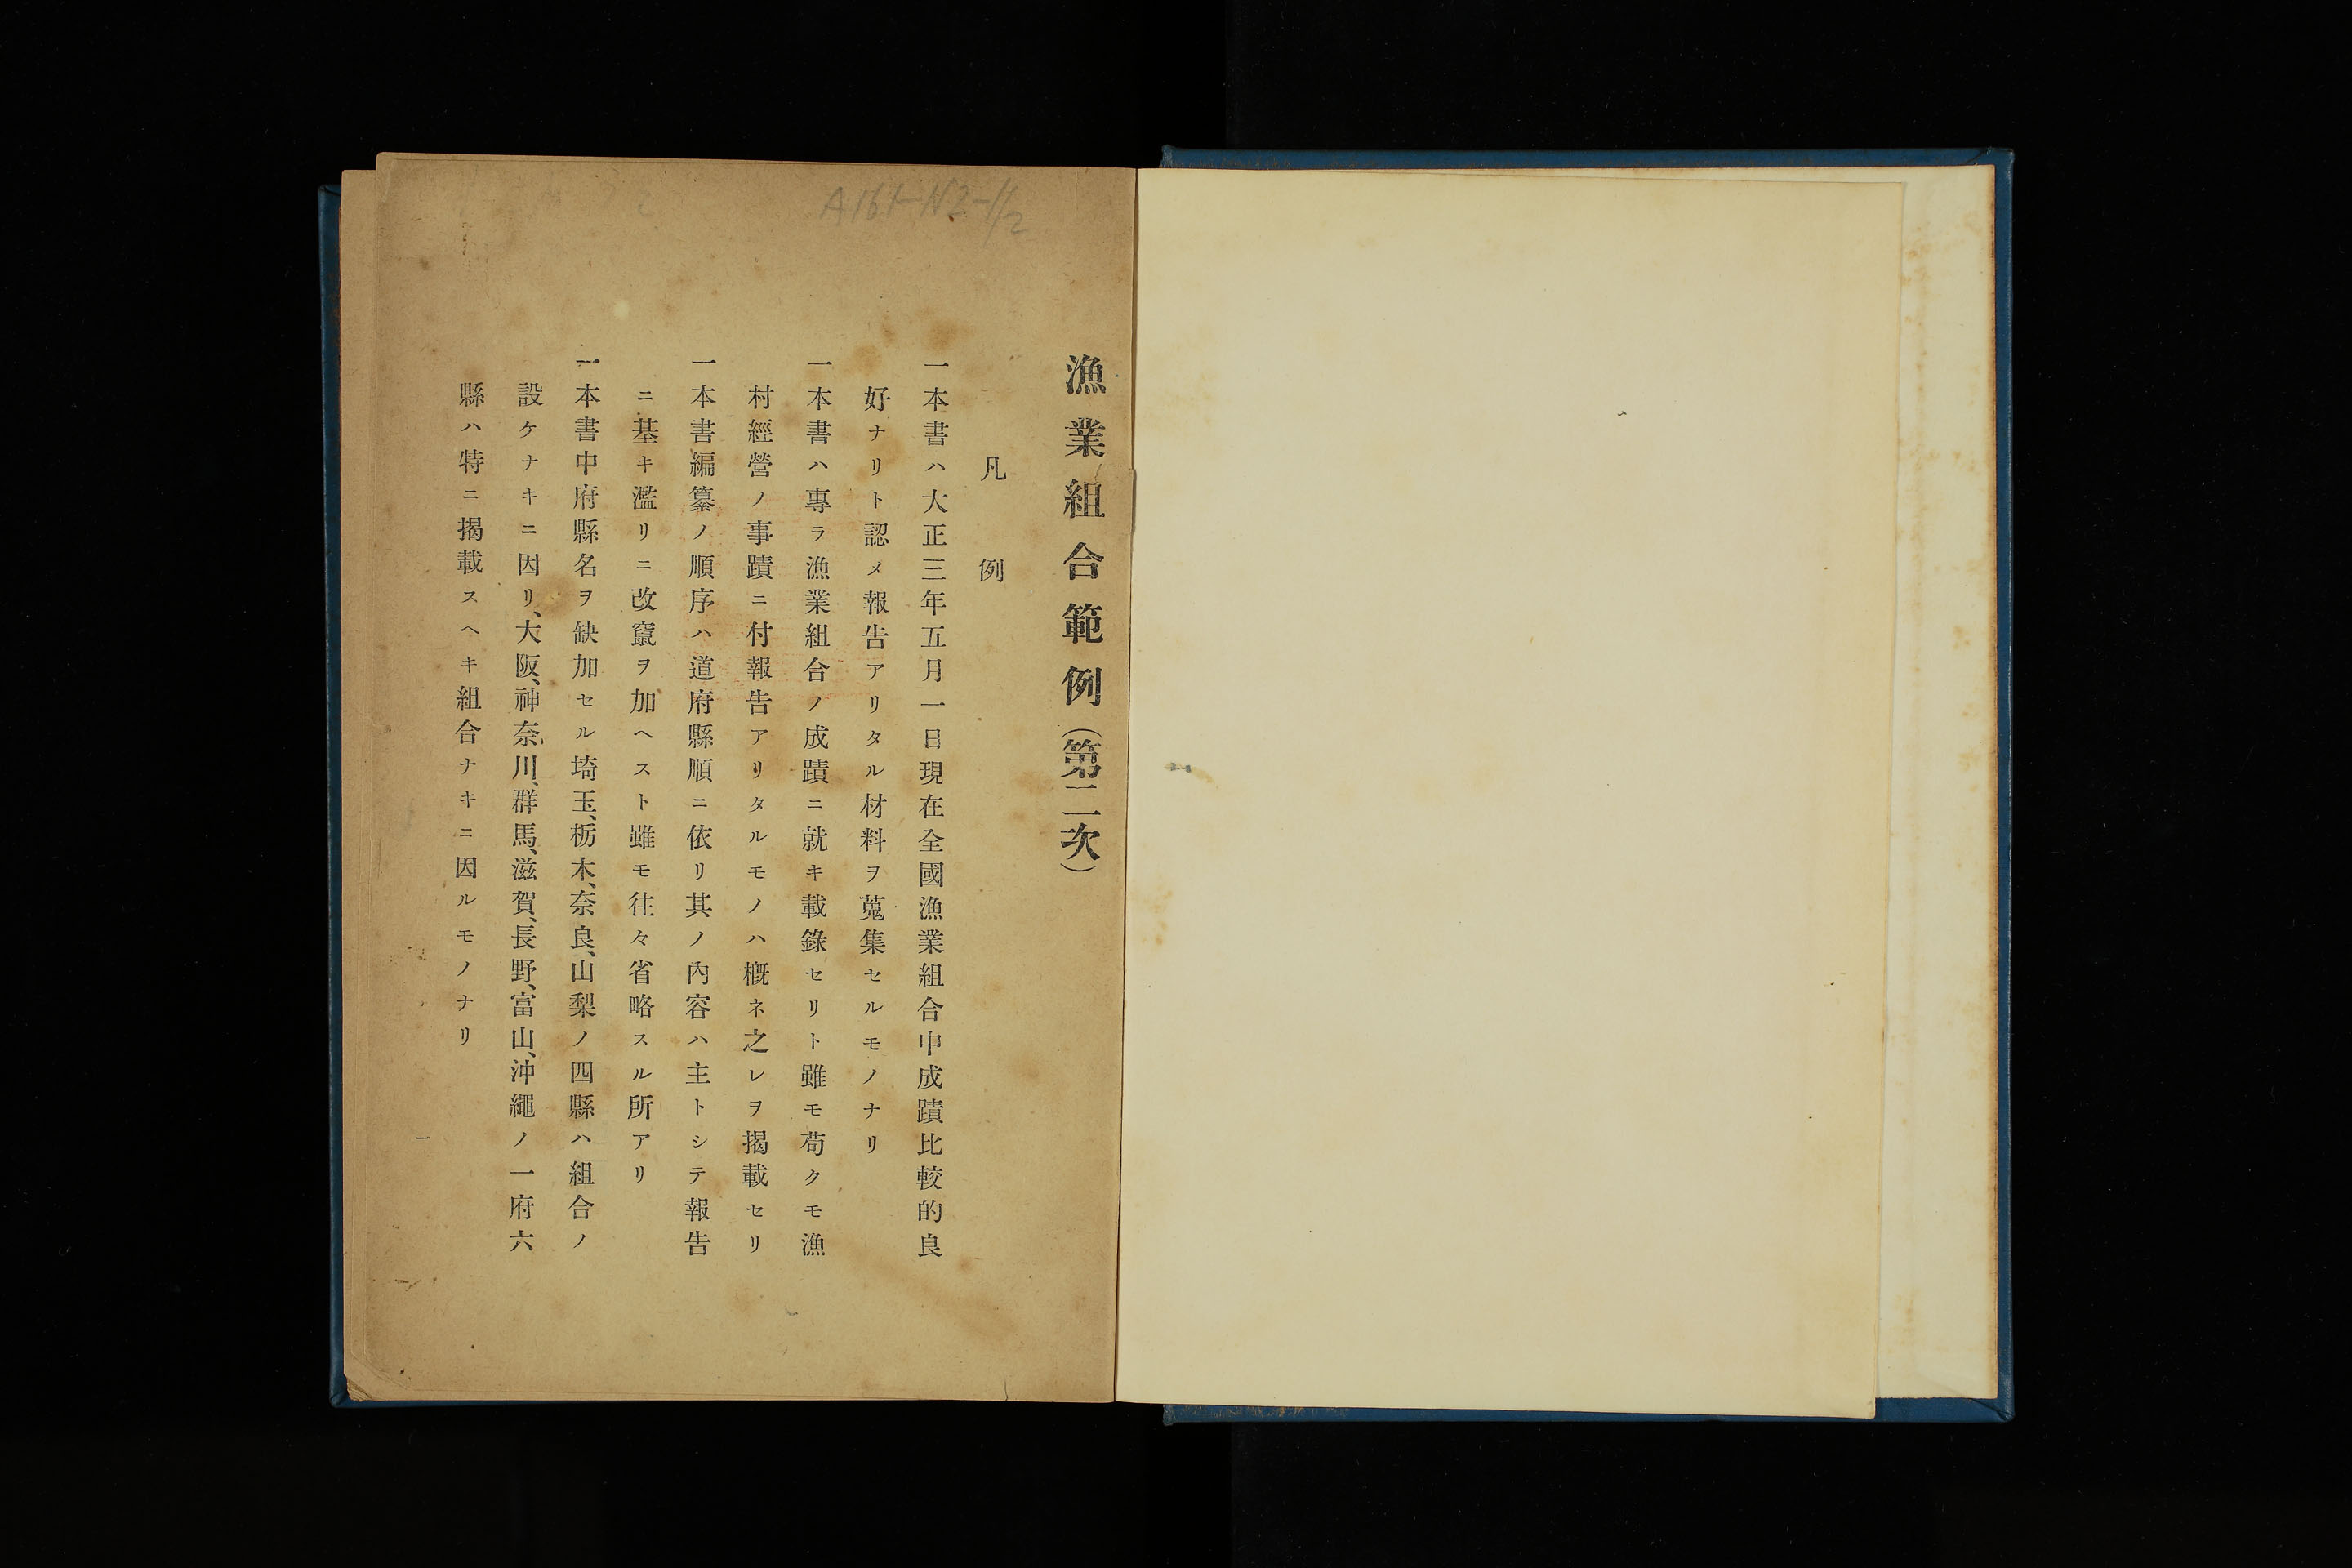 漁業組合範例(第二次)
凡例
一本書ハ大正三年五月一日現在全國漁業組合中成蹟比較的良
好ナリト認メ報告アリタル材料ヲ蒐集セルモノナリ
一本書ハ專ラ漁業組合ノ成蹟ニ就キ載錄セリト雖モ苟クモ漁
村經營ノ事蹟ニ付報告アリタルモノハ槪ネ之レヲ揭載セリ
一本書編纂ノ順序ハ道府縣順ニ依リ其ノ內容ハ主トシテ報告
ニ基キ濫リニ改竄ヲ加ヘスト雖モ往々省略スル所アリ
一本書中府縣名ヲ缺加セル埼玉、栃木、奈良、山梨ノ四縣ハ組合ノ
設ケナキニ因リ、大阪、神奈川、群馬、滋賀、長野、富山、沖繩ノ一府六
縣ハ特ニ揭載スヘキ組合ナキニ因ルモノナリ
一
A161-N2-1/2